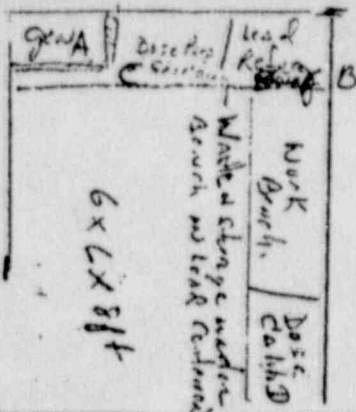 Gen A
Dose Prep
C
Lead
B
Work
Bench.
Dose
Calib D
Waste storage under
Bench in lead container
6 x 6 x 8 ft